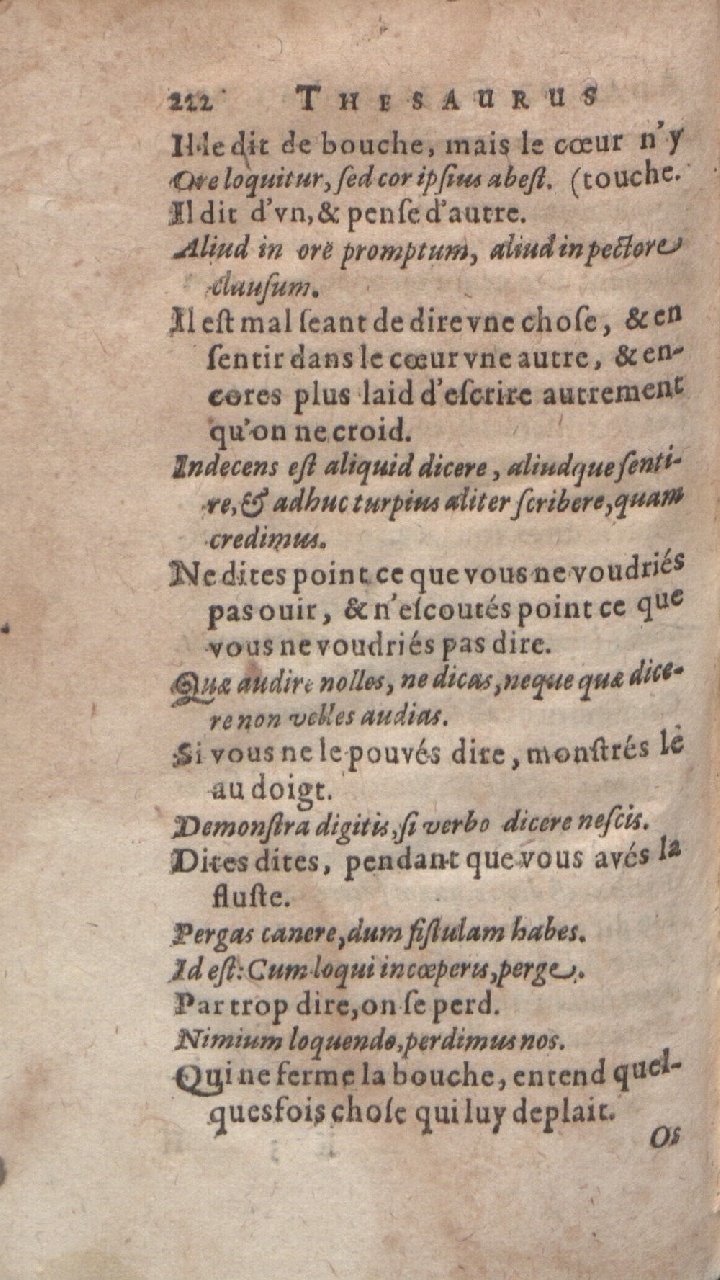 222 THESAURUS
Il le dit de bouche, mais le cœur n'y
Ore loquitur, ſed cor ipſius abeſt. (touche.
Il dit d'vn, & penſe d'autre.
Aliud in ore promptum, aliud in pectore
clauſum.
Il eſt mal ſeant de dire vne choſe, & en
ſentir dans le cœur vne autre, & en-
cores plus laid d'eſcrire autrement
qu'on ne croid.
Indecens eſt aliquid dicere, aliudque ſenti-
re, & adhuc turpius aliter ſcribere, quam
credimus.
Ne dites point ce que vous ne voudriés
pas ouir, & n'eſcoutés point ce que
vous ne voudriés pas dire.
Quæ audire nolles, ne dicas, neque quæ dice-
re non velles audias.
Si vous ne le pouvés dire, monſtrés le
au doigt.
Demonſtra digitis, ſi verbo dicere neſcis.
Dites dites, pendant que vous avés la
fluſte.
Pergas canere, dum fiſtulam habes.
Id eſt: Cum loqui incœperis, perge.
Par trop dire, on ſe perd.
Nimium loquendo, perdimus nos.
Qui ne ferme la bouche, entend quel-
quesfois choſe qui luy deplait.
Os